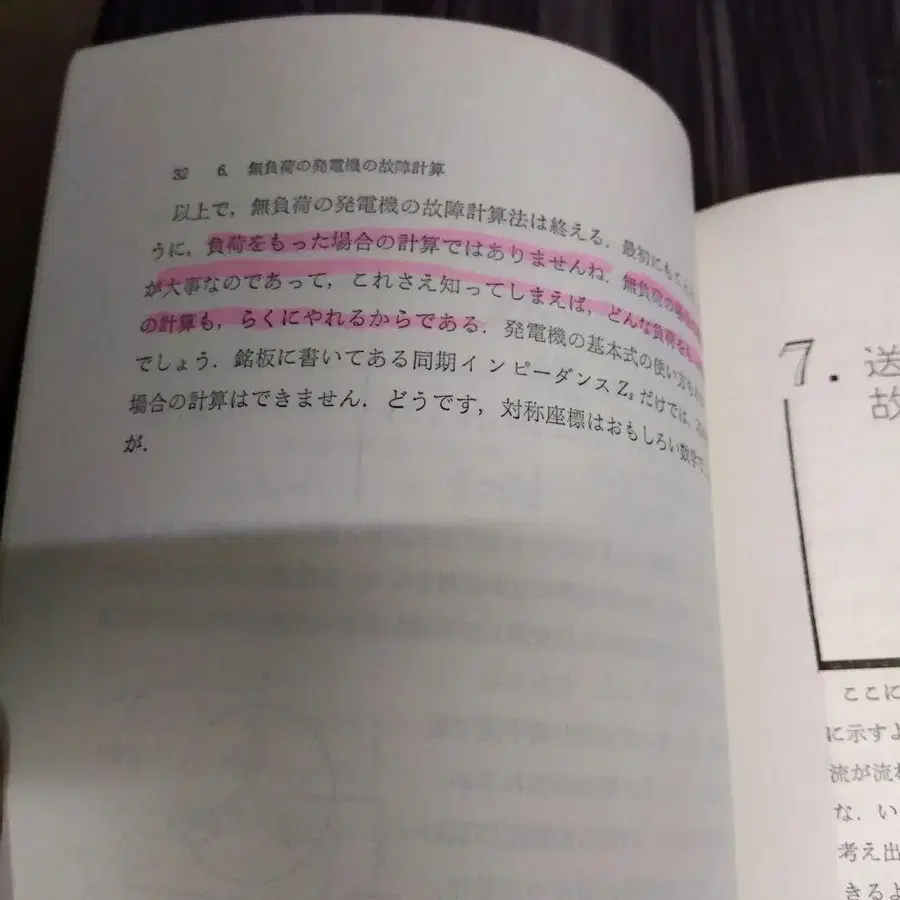 32 6. 無負荷の発電機の故障計算
以上で，無負荷の発電機の故障計算法は終える．最初にも
うに，負荷をもった場合の計算ではありませんね．無負荷の
が大事なのであって，これさえ知ってしまえば，どんな負荷を
の計算も，らくにやれるからである．発電機の基本式の使い方も
でしょう．銘板に書いてある同期インピーダンスZₛだけでは，
場合の計算はできません．どうです，対称座標はおもしろい数学で
が．
7．送
故
ここに
に示すよ
流が流れ
な．い
考え出
きるよ